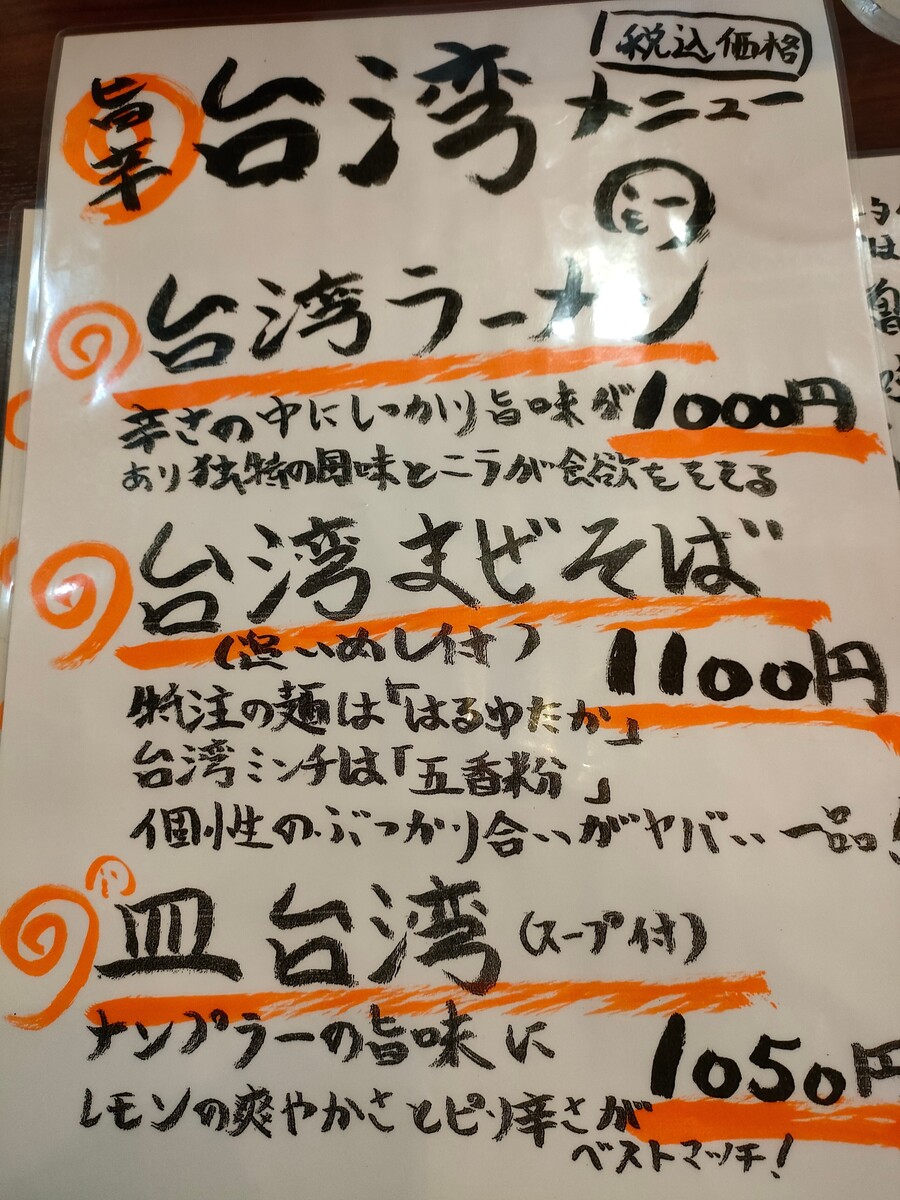 税込価格
旨辛 台湾メニュー
台湾ラーメン
辛さの中にしっかり旨味が 1000円
あり独特の風味とニラが食欲をそそる
台湾まぜそば
(追いめし付) 1100円
特注の麺は「はるゆたか」
台湾ミンチは「五香粉」
個性のぶつかり合いがヤバい一品!
皿台湾(スープ付)
ナンプラーの旨味に 1050円
レモンの爽やかさとピリ辛さが
ベストマッチ!